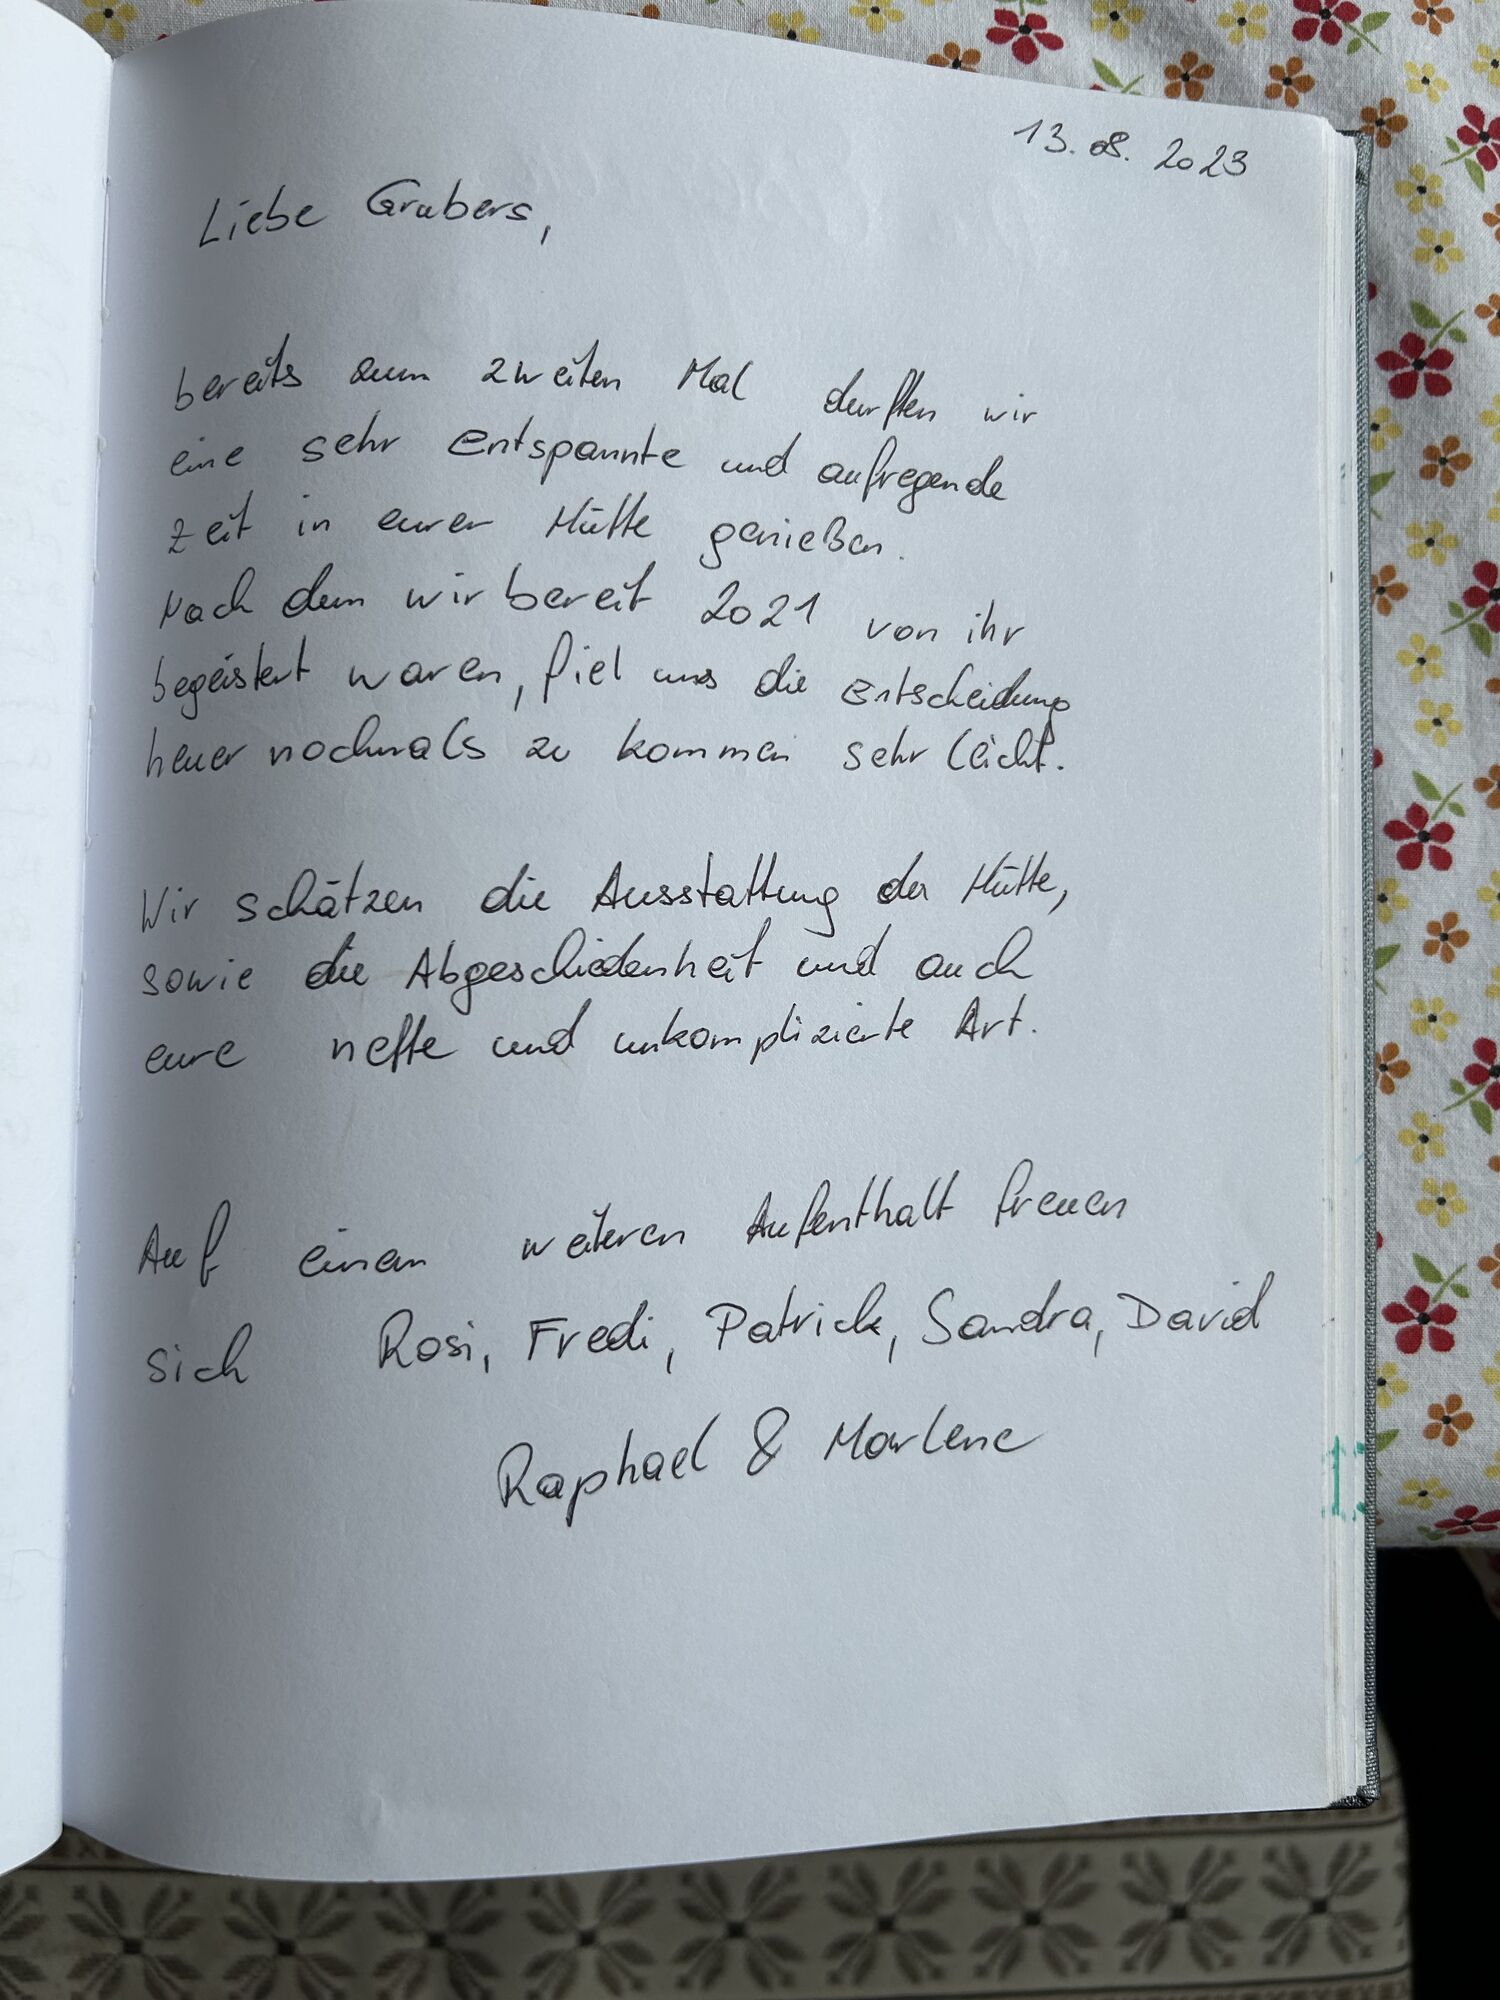 13.08.2023
Liebe Grubers,
bereits zum zweiten Mal durften wir
eine sehr entspannte und aufregende
Zeit in eurer Hütte genießen.
Nach dem wir bereit 2021 von ihr
begeistert waren, fiel uns die Entscheidung
heuer nochmals zu kommen sehr leicht.
Wir schätzen die Ausstattung der Hütte,
sowie die Abgeschiedenheit und auch
eure nette und unkomplizierte Art.
Auf einen weiteren Aufenthalt freuen
sich Rosi, Fredi, Patrick, Sandra, David
Raphael & Marlene